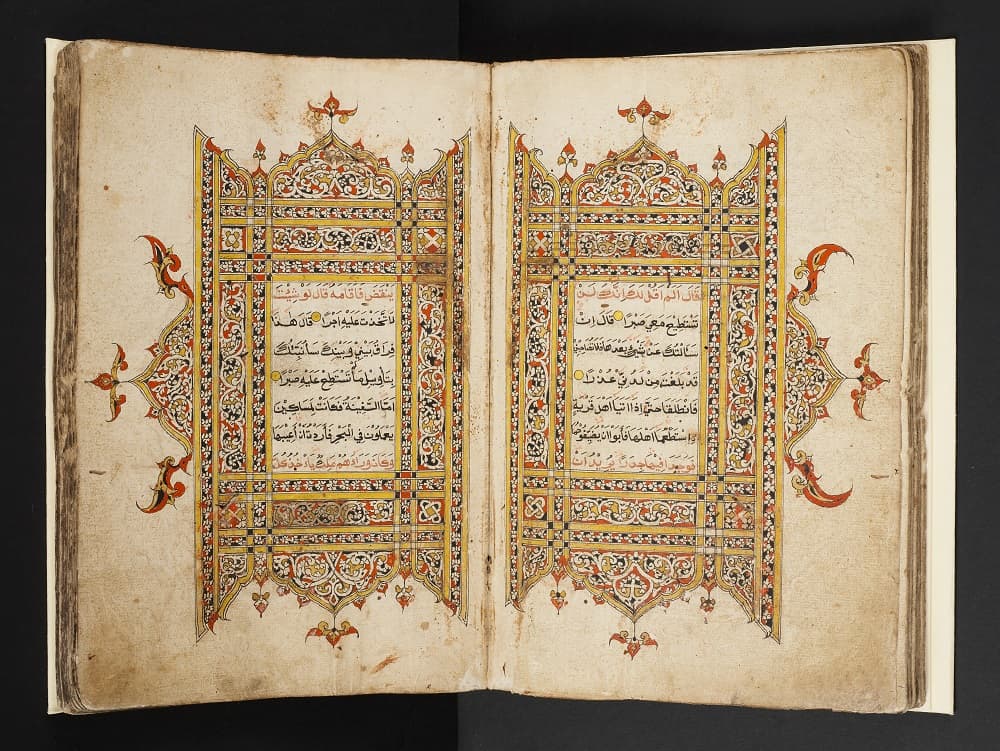 قَالَ اَلَمْ اَقُلْ لَكَ اِنَّكَ لَنْ
تَسْتَطِيْعَ مَعِيَ صَبْرًا قَالَ اِنْ
سَاَلْتُكَ عَنْ شَيْءٍ بَعْدَهَا فَلَا تُصَاحِبْنِيْ
قَدْ بَلَغْتَ مِنْ لَدُنِّيْ عُذْرًا
فَانْطَلَقَا حَتّٰى اِذَا اَتَيَا اَهْلَ قَرْيَةٍ
اِسْتَطْعَمَا اَهْلَهَا فَاَبَوْا اَنْ يُضَيِّفُوْهُمَا
فَوَجَدَا فِيْهَا جِدَارًا يُرِيْدُ اَنْ
يَنْقَضَّ فَاَقَامَهُ قَالَ لَوْ شِئْتَ
لَاتَّخَذْتَ عَلَيْهِ اَجْرًا قَالَ هٰذَا
فِرَاقُ بَيْنِيْ وَبَيْنِكَ سَاُنَبِّئُكَ
بِتَأْوِيْلِ مَا لَمْ تَسْتَطِعْ عَلَيْهِ صَبْرًا
اَمَّا السَّفِيْنَةُ فَكَانَتْ لِمَسٰكِيْنَ
يَعْمَلُوْنَ فِي الْبَحْرِ فَاَرَدْتُ اَنْ اَعِيْبَهَا
وَكَانَ وَرَاءَهُمْ مَلِكٌ يَأْخُذُ كُلَّ